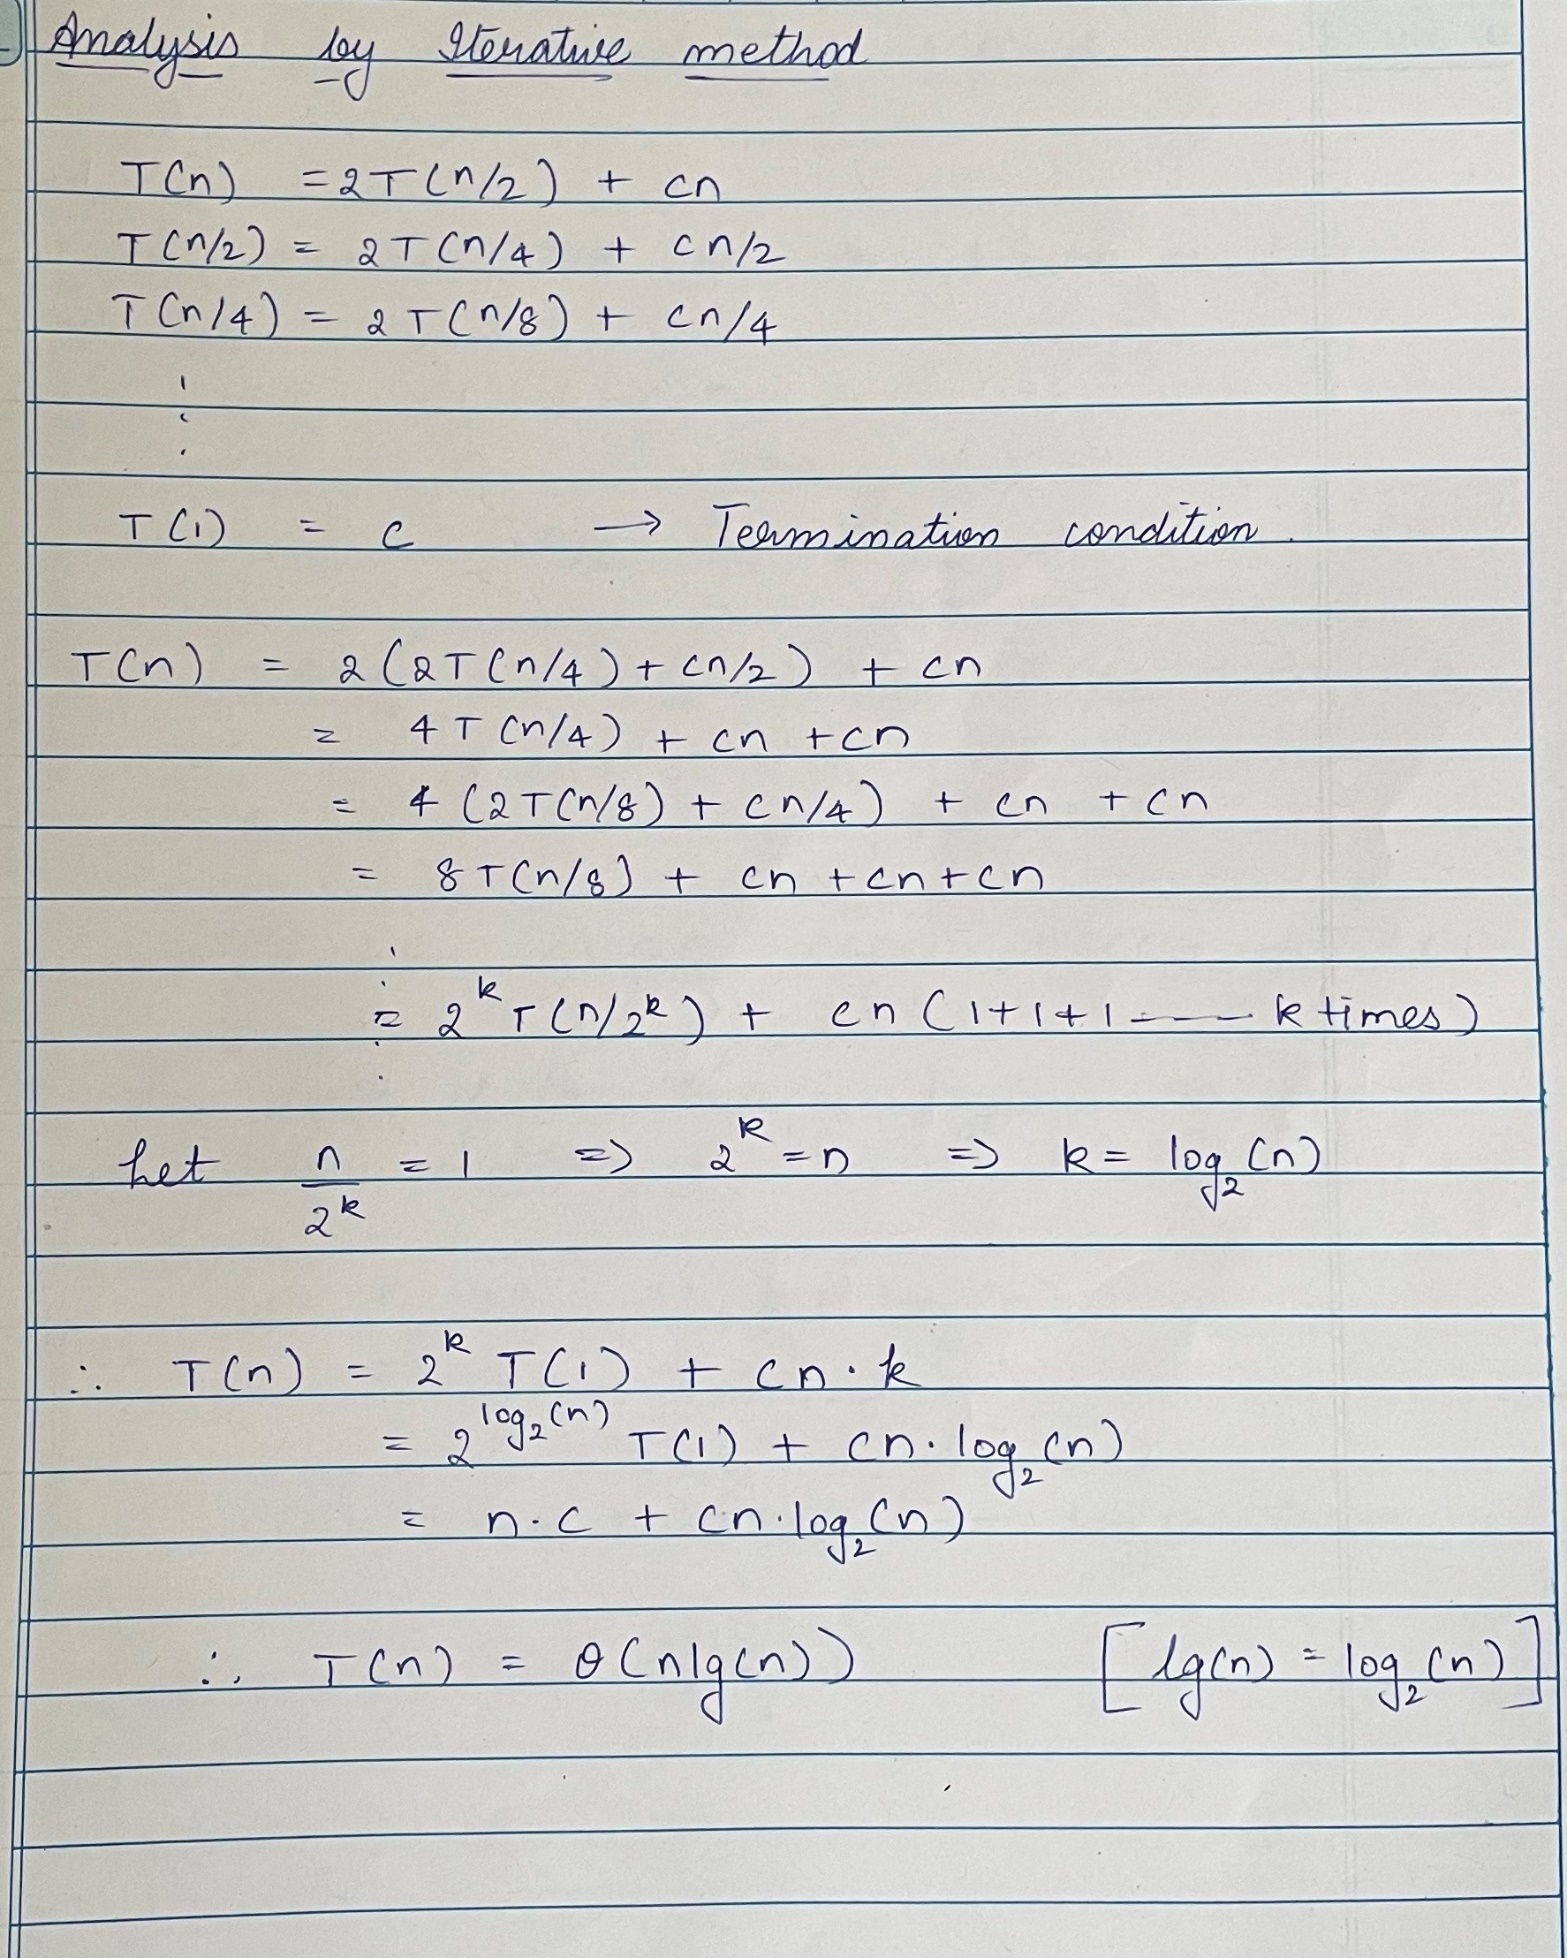 Analysis by Iterative method
T(n) = 2T(n/2) + cn
T(n/2) = 2T(n/4) + cn/2
T(n/4) = 2T(n/8) + cn/4
⋮
T(1) = c → Termination condition.
T(n) = 2(2T(n/4) + cn/2) + cn
= 4T(n/4) + cn + cn
= 4(2T(n/8) + cn/4) + cn + cn
= 8T(n/8) + cn + cn + cn
⋮
= 2^k T(n/2^k) + cn(1+1+1 ---- k times)
Let n/2^k = 1 => 2^k = n => k = log₂(n)
∴ T(n) = 2^k T(1) + cn·k
= 2^log₂(n) T(1) + cn·log₂(n)
= n·c + cn·log₂(n)
∴ T(n) = θ(nlg(n)) [lg(n) = log₂(n)]